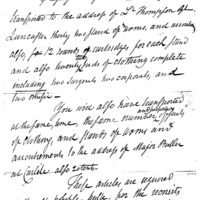 transported to the address of Lt Thompson
Lancaster thirty two stand of arms, and
also for 12 rounds of cartridge for each stand
and also twenty suits of clothing complete
including two sargents two corporals, and
two
You will also have transported
at the same time, the same number of suits
of clothing, and stands of arms and
accoutrements to the address of Major
at Carlisle also
These articles are required
for the recruits